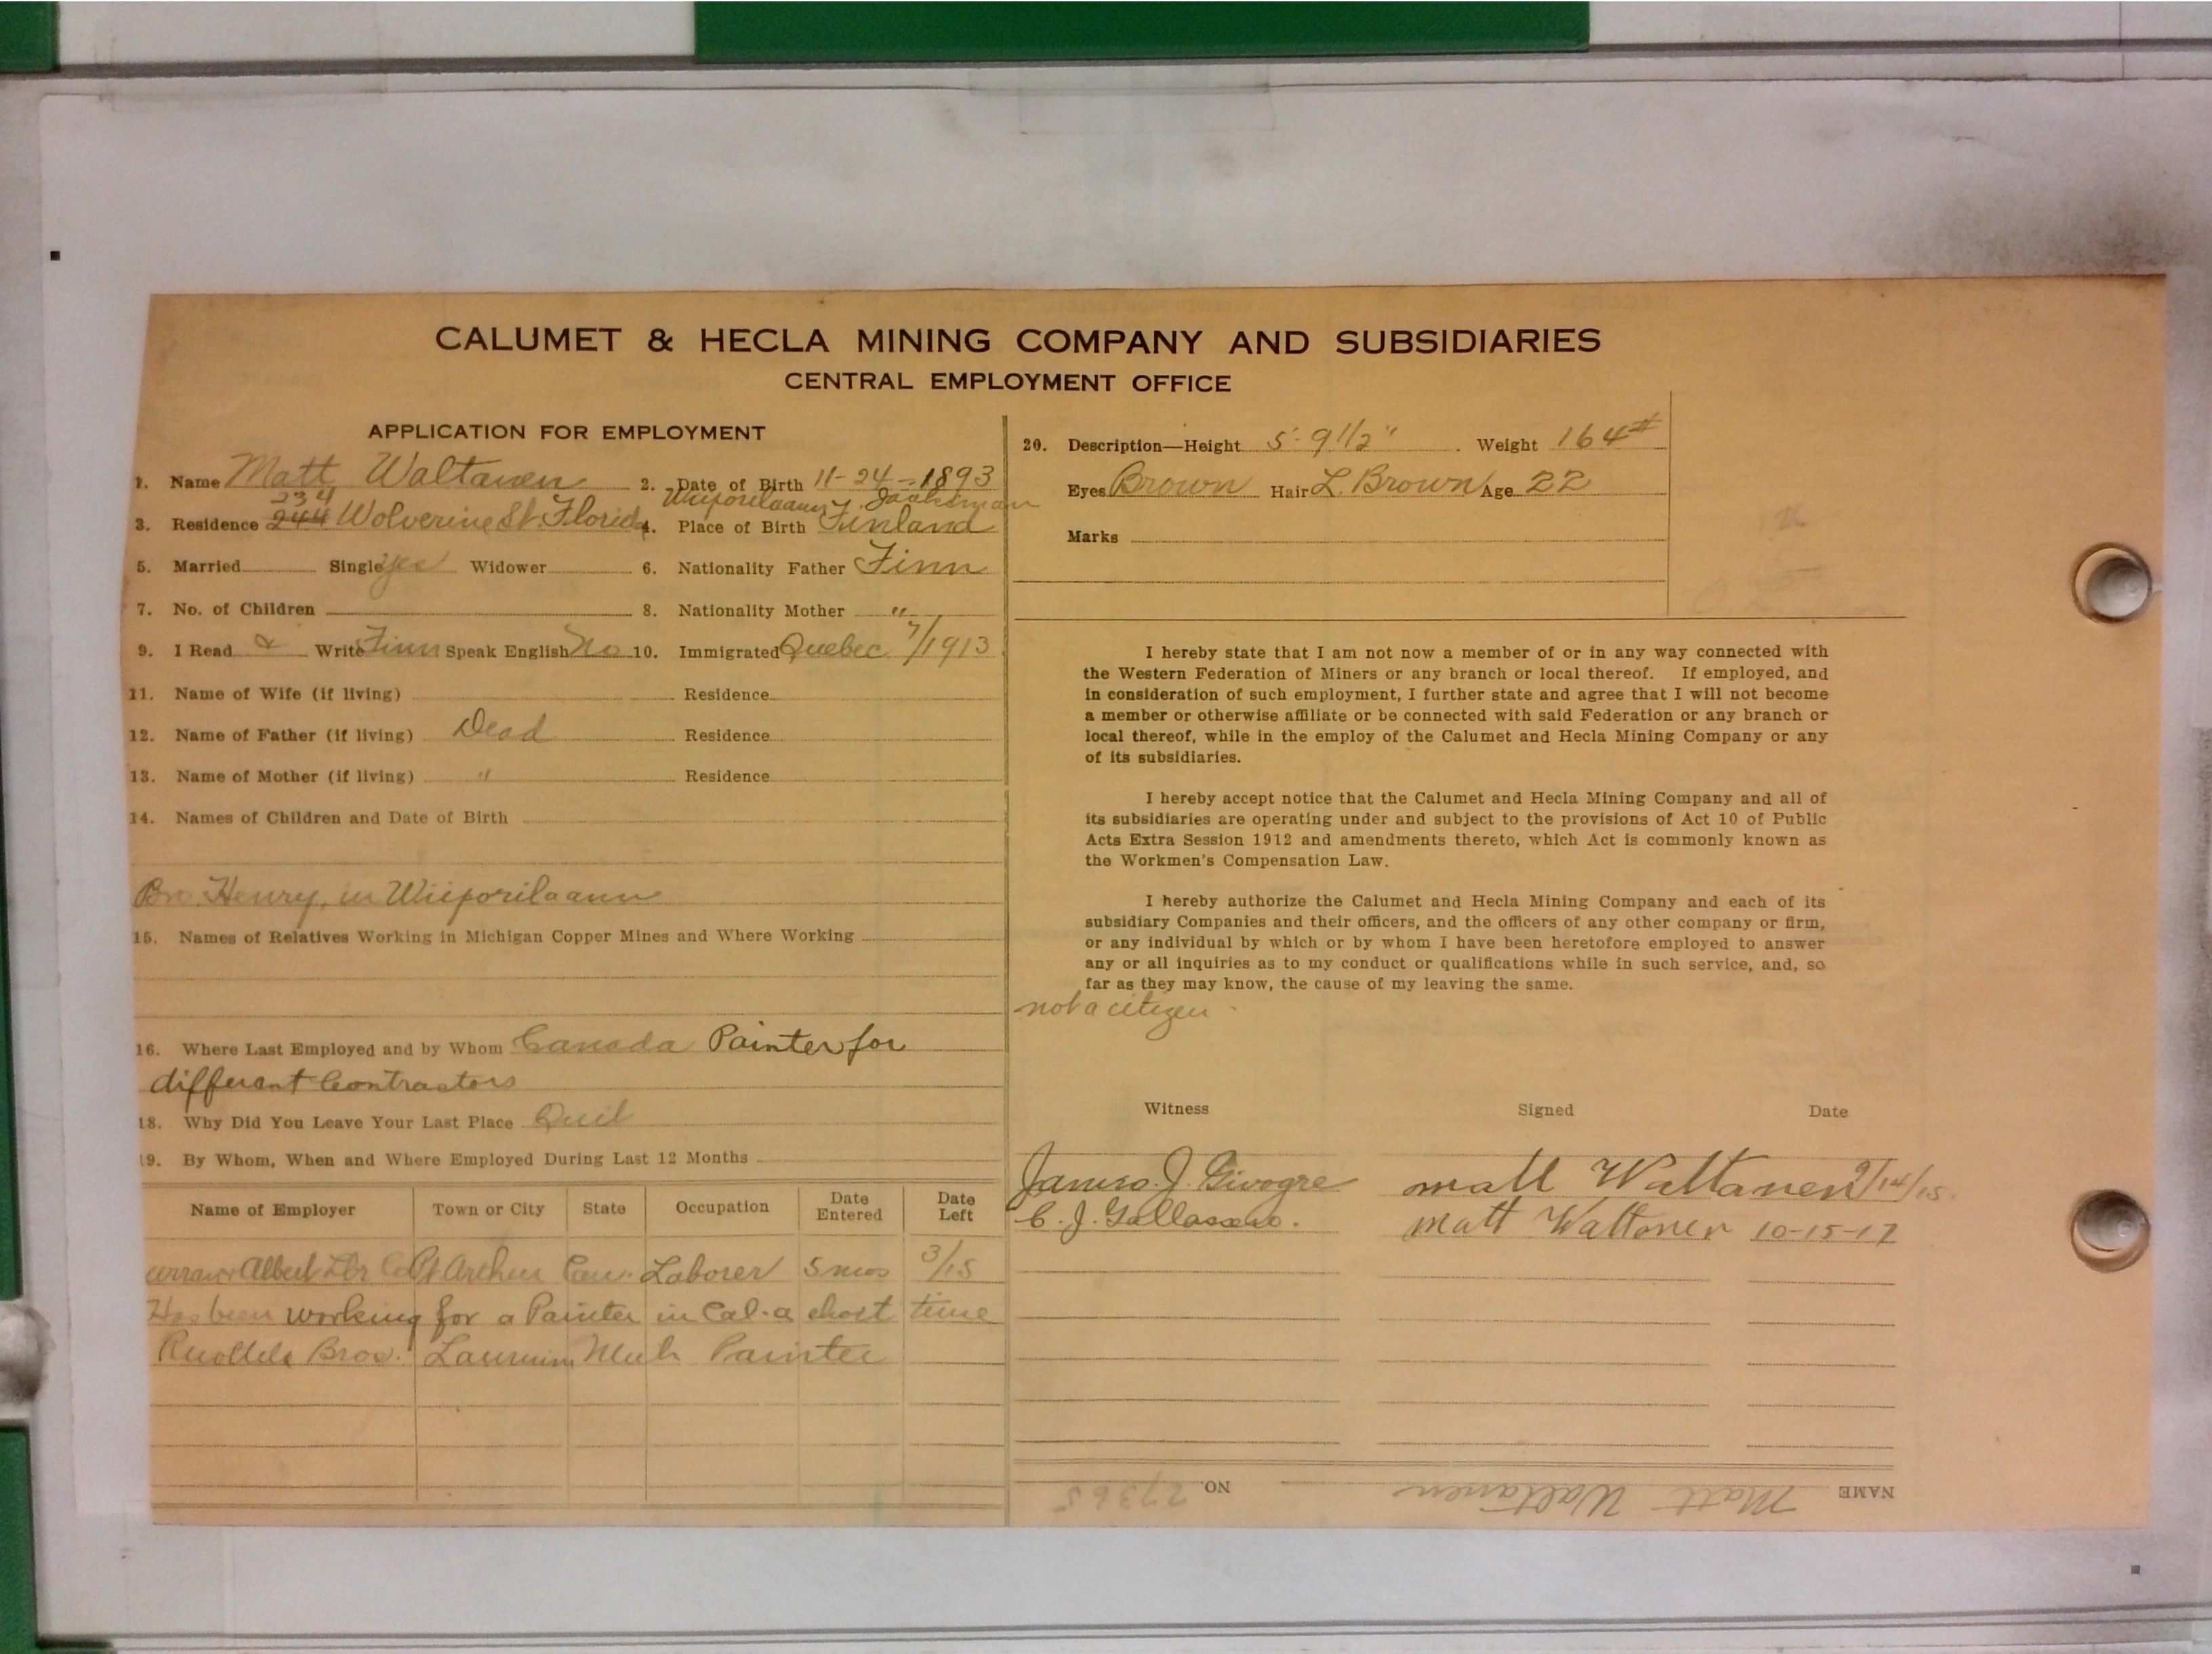 CALUMET & HECLA MINING COMPANY AND SUBSIDIARIES
CENTRAL EMPLOYMENT OFFICE
APPLICATION FOR EMPLOYMENT
1. Name Matt Waltanen 2. Date of Birth 11-24-1893
234 Wiiporilaann
3. Residence 244 Wolverine St. Florida 4. Place of Birth Finland
5. Married Single yes Widower 6. Nationality Father Finn
7. No. of Children 8. Nationality Mother "
9. I Read & Write Finn Speak English No 10. Immigrated Quebec 7/1913
11. Name of Wife (if living) Residence
12. Name of Father (if living) Dead Residence
13. Name of Mother (if living) " Residence
14. Names of Children and Date of Birth
Bro. Henry, in Wiiporilaann
15. Names of Relatives Working in Michigan Copper Mines and Where Working
16. Where Last Employed and by Whom Canada Painter for
different Contractors
18. Why Did You Leave Your Last Place Quit
19. By Whom, When and Where Employed During Last 12 Months
Name of Employer Town or City State Occupation Date Entered Date Left
Albert Lbr Co Pt Arthur Can. Laborer 5 mos 3/15
Has been working for a Painter in Cal. a short time
Bros. Laurium Mich Painter
20. Description—Height 5'-9 1/2" Weight 164#
Eyes Brown Hair L. Brown Age 22
Marks
I hereby state that I am not now a member of or in any way connected with
the Western Federation of Miners or any branch or local thereof. If employed, and
in consideration of such employment, I further state and agree that I will not become
a member or otherwise affiliate or be connected with said Federation or any branch or
local thereof, while in the employ of the Calumet and Hecla Mining Company or any
of its subsidiaries.
I hereby accept notice that the Calumet and Hecla Mining Company and all of
its subsidiaries are operating under and subject to the provisions of Act 10 of Public
Acts Extra Session 1912 and amendments thereto, which Act is commonly known as
the Workmen's Compensation Law.
I hereby authorize the Calumet and Hecla Mining Company and each of its
subsidiary Companies and their officers, and the officers of any other company or firm,
or any individual by which or by whom I have been heretofore employed to answer
any or all inquiries as to my conduct or qualifications while in such service, and, so
far as they may know, the cause of my leaving the same.
not a citizen
Witness Signed Date
James. J. Givogre Matt Waltanen 9/14/15
C. J. Matt Waltonen 10-15-17
NAME Matt Waltanen NO. 27365